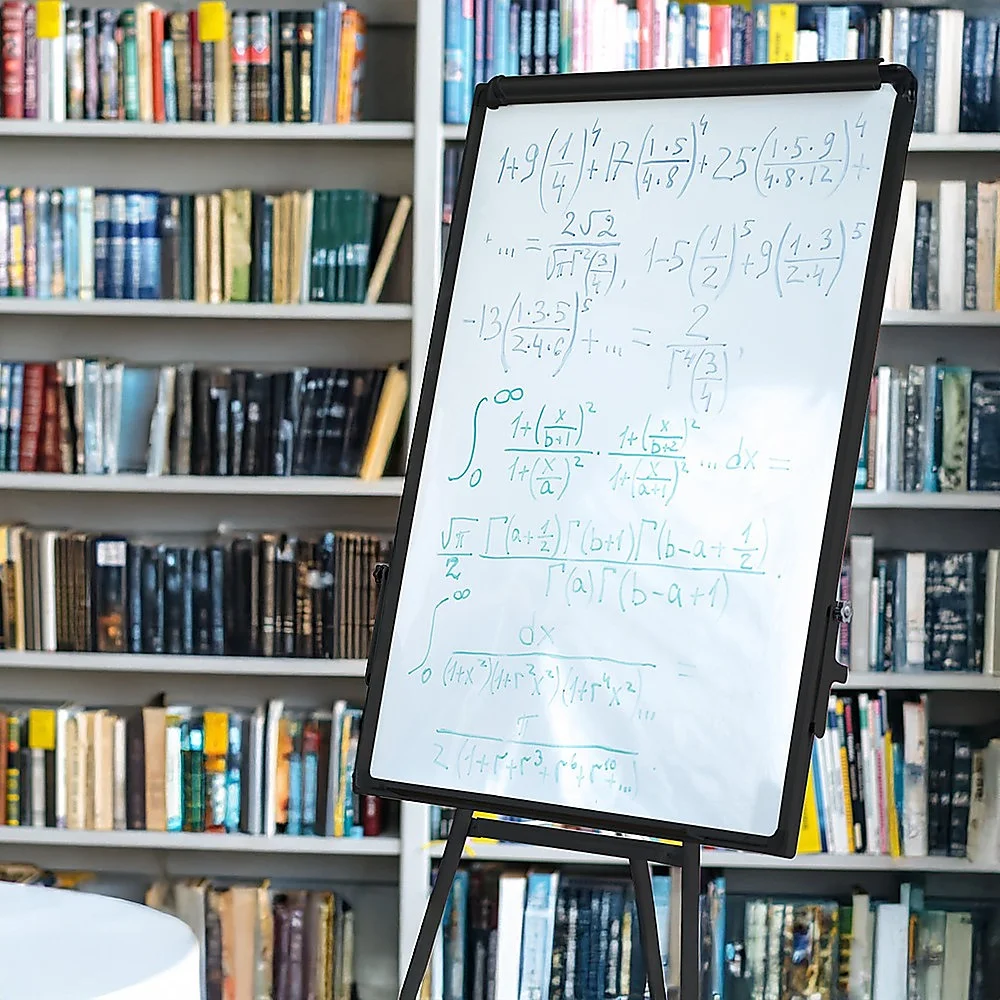 1+9(1/4)^4+17(1·5/4·8)^4+25(1·5·9/4·8·12)^4+
+... = 2√2/√π Γ²(3/4), 1-5(1/2)^5+9(1·3/2·4)^5
-13(1·3·5/2·4·6)^5+... = 2/Γ⁴(3/4),
∫_0^∞ 1+(x/b+1)²/1+(x/a)² · 1+(x/b+2)²/1+(x/a+1)² ... dx =
√π/2 Γ(a+1/2)Γ(b+1)Γ(b-a+1/2)/Γ(a)Γ(b-a+1).
∫_0^∞ dx/(1+x²)(1+r²x²)(1+r⁴x²)... =
π/2(1+r+r³+r⁶+r¹⁰+...).